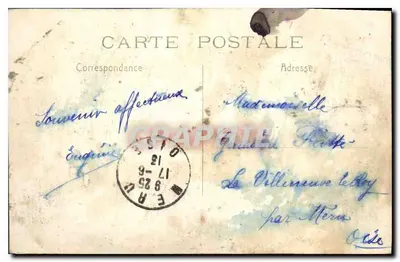 CARTE POSTALE
Correspondance
Adresse
Souvenir affectueux
Eugénie
MERU OISE
9 25
17-6
13
Mademoiselle
La Villeneuve le Roy
par Méru
Oise